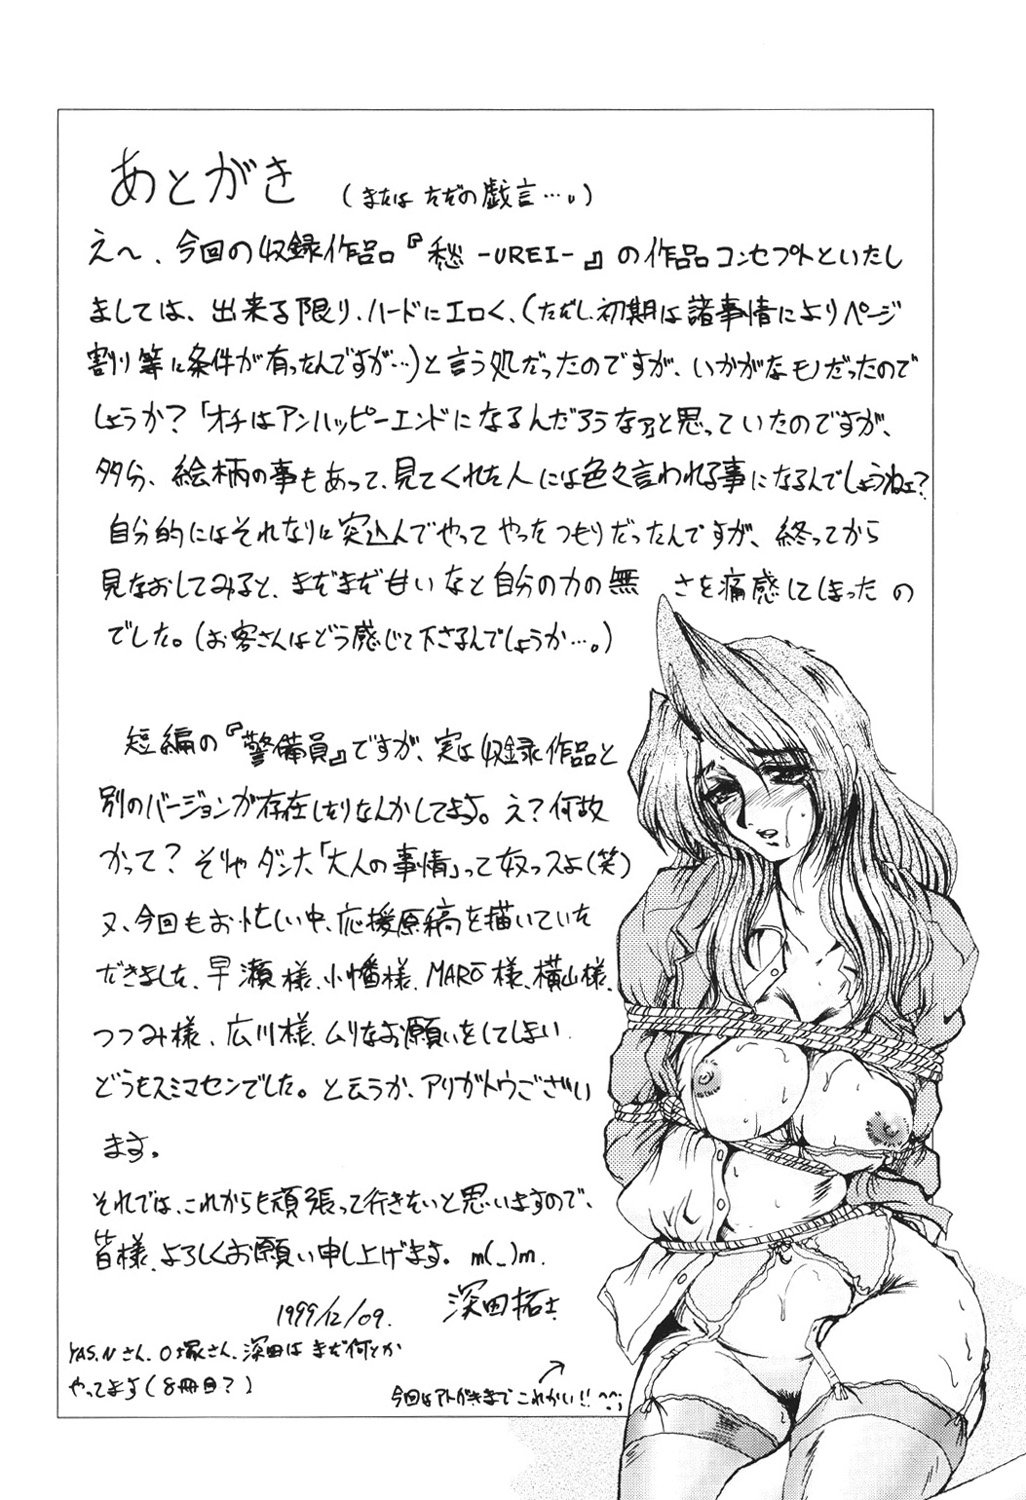 あとがき（またはただの戯言…。）
えー、今回の収録作品『愁-UREI-』の作品コンセプトといたし
ましては、出来る限り、ハードにエロく、（ただし初期は諸事情によりページ
割り等に条件が有ったんですが…）と言う処だったのですが、いかがなモノだったので
しょうか？「オチはアンハッピーエンドになるんだろうなァ」と思っていたのですが、
多分、絵柄の事もあって、見てくれた人には色々言われる事になるんでしょうねェ？
自分的にはそれなりに突込んでやってやったつもりだったんですが、終ってから
見なおしてみると、まだまだ甘いなと自分の力の無さを痛感してしまったの
でした。（お客さんはどう感じて下さるんでしょうか…。）
短編の『警備員』ですが、実は収録作品と
別のバージョンが存在したりなんかしてます。え？何故
かって？そりゃダンナ「大人の事情」って奴っスよ（笑）
又、今回もお忙しい中、応援原稿を描いていた
だきました、早瀬様、小幡様、MARO様、横山様、
つつみ様、広川様、ムリなお願いをしてしまい
どうもスミマセンでした。と云うか、アリガトウござい
ます。
それでは、これからも頑張って行きたいと思いますので、
皆様、よろしくお願い申し上げます。m(_)m.
1999/12/09. 深田拓士
YAS.Nさん、O塚さん、深田はまだ何とか
やってます（8冊目？）
今回はアトがきまでこれかい!! ^^;